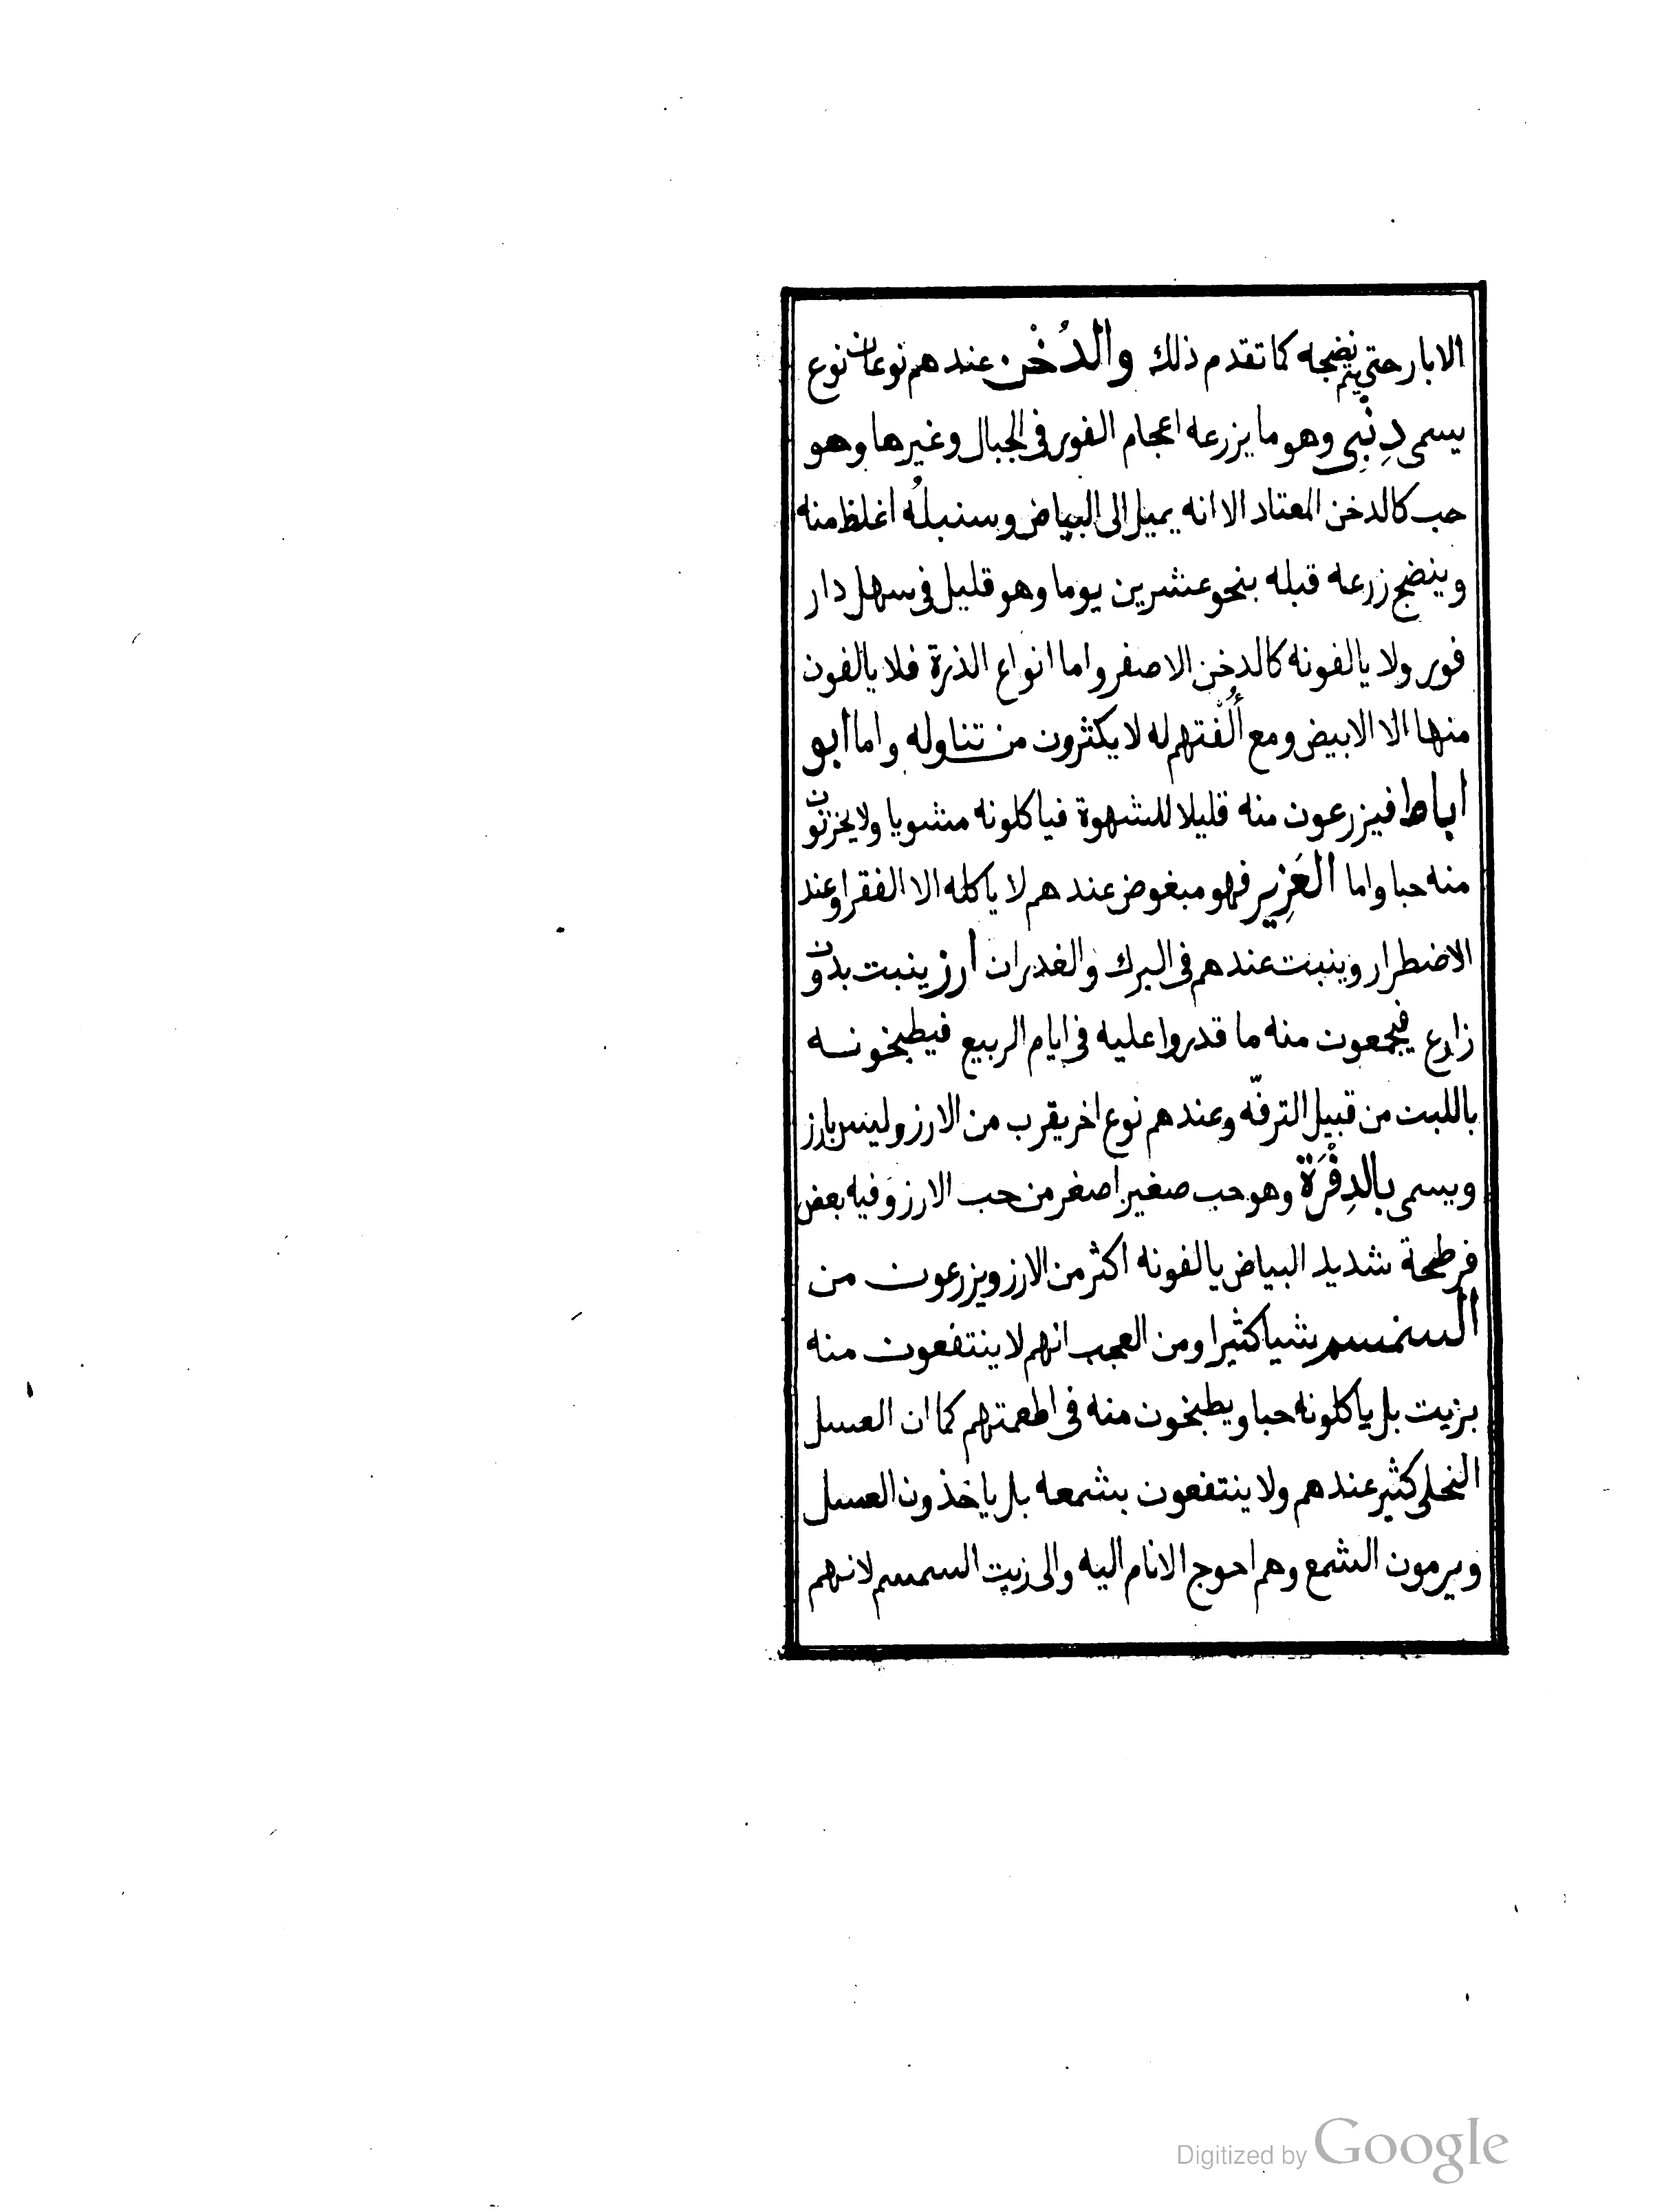 الابار حتى يتم نضجه كما تقدم ذلك والدُخْن عندهم نوعان نوع
يسمى دِنْبِى وهو ما يزرعه اعجام الفور فى الجبال وغيرها وهو
حب كالدخن المعتاد الا انه يميل الى البياض وسنبلُه اغلظ منه
وينضج زرعه قبله بنحو عشرين يوما وهو قليل فى سهل دار
فور ولا يالفونه كالدخن الاصفر واما انواع الذرة فلا يالفون
منها الا الابيض ومع أُلْفتهم له لا يكثرون من تناوله واما ابو
اباط فيزرعون منه قليلا للشهوة فياكلونه مشويا ولا يخزنون
منه حبا واما العَزِير فهو مبغوض عندهم لا ياكله الا الفقرا وعند
الاضطرار وينبت عندهم فى البرك والغدران ارز ينبت بدون
زارع فيجمعون منه ما قدروا عليه فى ايام الربيع فيطبخونه
باللبن من قبيل الترفّه وعندهم نوع اخر يقرب من الارز وليس بارز
ويسمى بالدِفْرَة وهو حب صغير اصغر من حب الارز وفيه بعض
فرطحة شديد البياض يالفونه اكثر من الارز ويزرعون من
السمسم شيا كثيرا ومن العجب انهم لا ينتفعون منه
بزيت بل ياكلونه حبا ويطبخون منه فى اطعمتهم كما ان العسل
النحلى كثير عندهم ولا ينتفعون بشمعه بل ياخذون العسل
ويرمون الشمع وهم احوج الانام اليه والى زيت السمسم لانهم
Digitized by Google